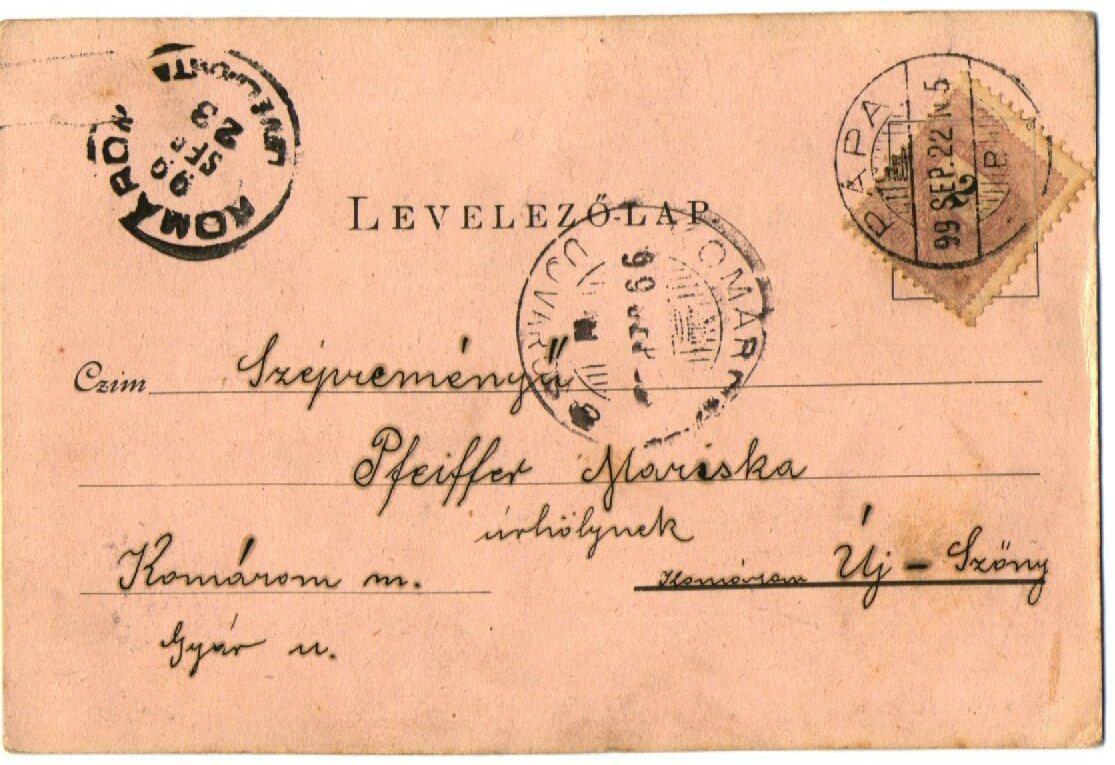 KOMÁROM
99
SEP
23
LEVELEZŐ-LAP
PÁPA
99 SEP. 22 N 5
P.
2
KOMÁROM
UJVÁROS
99
Czim Szépreményű
Pfeiffer Mariska
úrhölynek
Komárom m.
Komárom Új-Szőny
Gyár u.